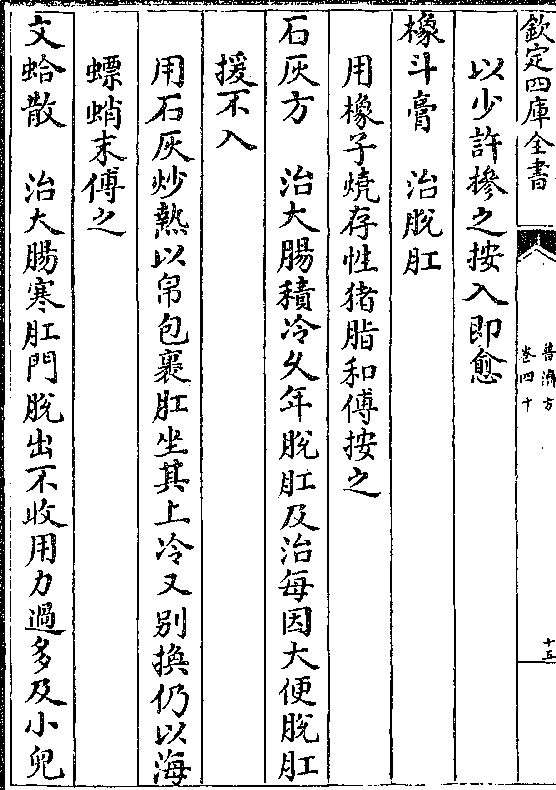 欽定四庫全書
普濟方
卷四十
十五
以少許摻之按入即愈
橡斗膏　治脫肛
用橡子燒存性猪脂和傅按之
石灰方　治大腸積冷久年脫肛及治每因大便脫肛
援不入
用石灰炒熱以帛包裹肛坐其上冷又别換仍以海
螵蛸末傅之
文蛤散　治大腸寒肛門脫出不收用力過多及小兒